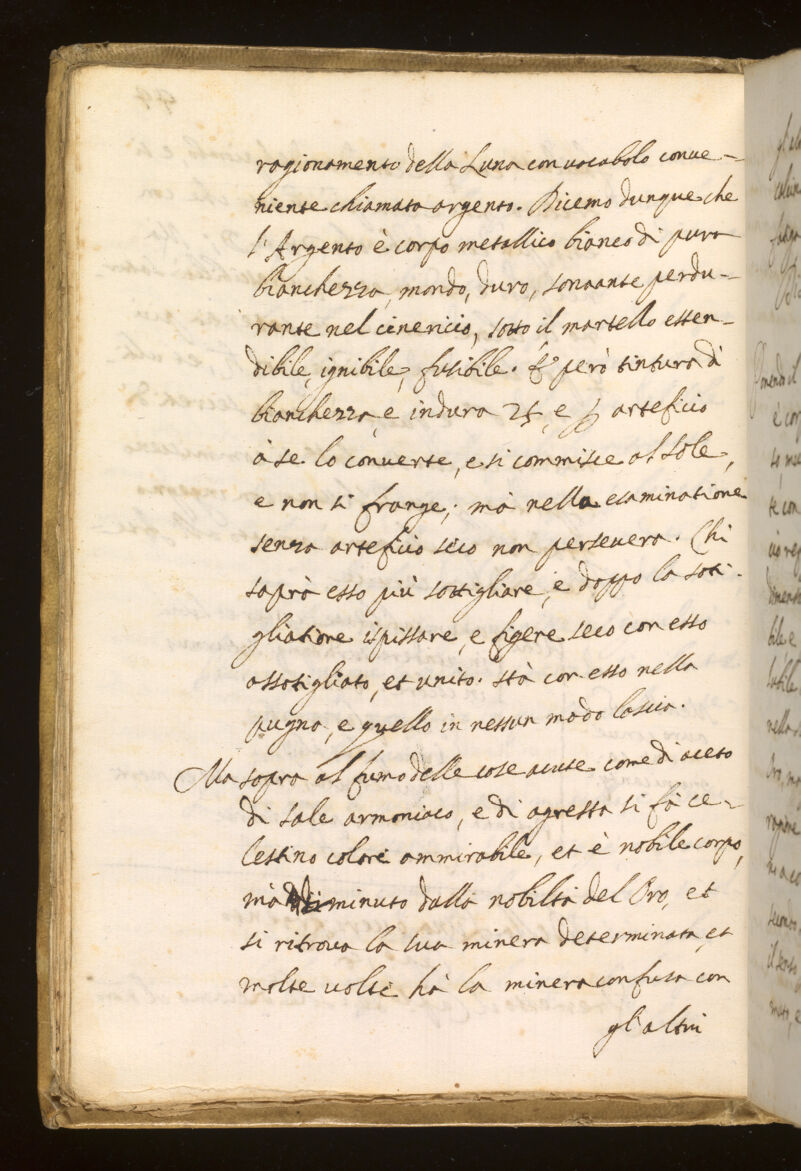 ragionamento della Luna con uocabolo conue-
niente chiamata argento. Dicemo dunque che
l'Argento è corpo metallico bianco di pura
bianchezza, mondo, duro, sonante perdu-
rante nel cinericio, sotto il martello esten-
dibile, ignibile, fusibile. E però tintura di
bianchezza, e indura ♃, e ♄ arteficio
à se lo conuerte, e si commisce al Sole,
e non si frange; mà nella esaminatione
senza arteficio seco non perseuera. Chi
saprà esso più sottigliare, e doppo la soti-
gliatione ispissare, e figere seco con esso
assotigliato, et unito. Stà con esso nella
pugna, e quello in nessun modo lascia.
Ma sopra al fumo delle cose acute come di aceto
di sale armoniaco, e di agresta si fà ce-
lestino colore ammirabile, et è nobile corpo,
mà diminuto dalla nobiltà del Oro, et
si ritroua la sua minera determinata, et
molte uolte hà la minera confusa con
gl'altri